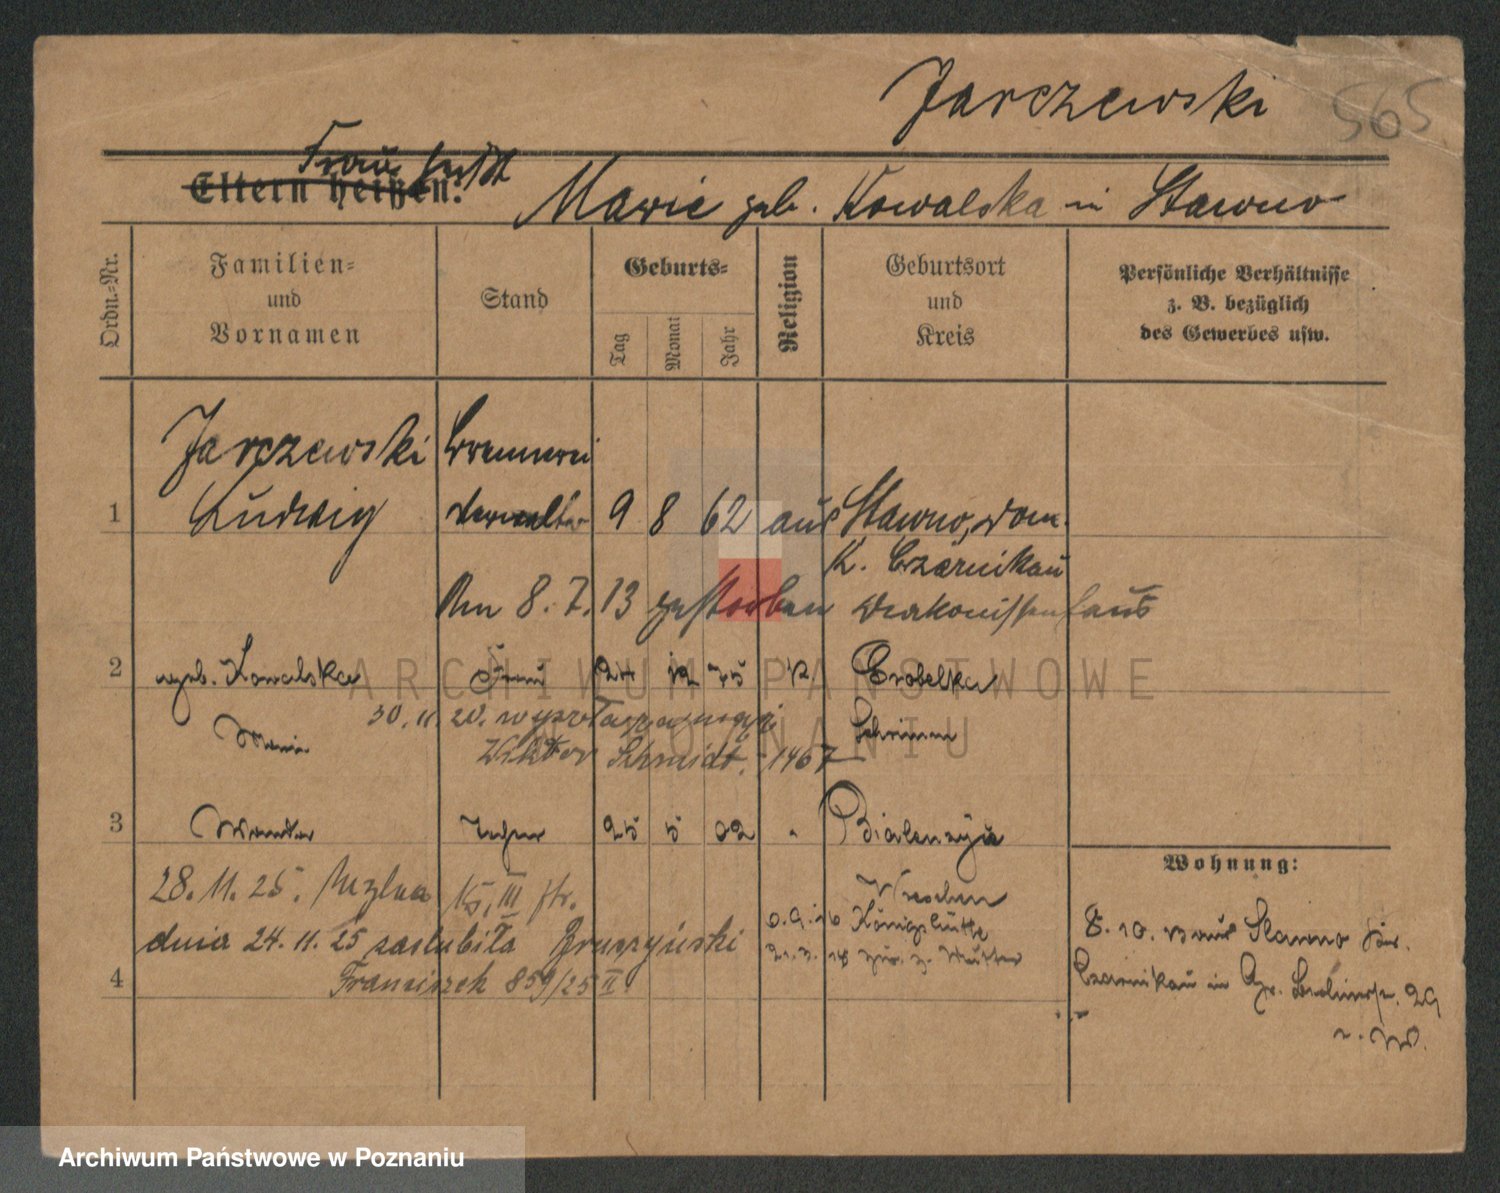 Jarczewski 565
Frau heißt
Eltern heißen:
Marie geb. Kowalska in Stawno
Ordn.=Nr.
Familien=
und
Vornamen
Stand
Geburts=
Tag
Monat
Jahr
Religion
Geburtsort
und
Kreis
Persönliche Verhältnisse
z. B. bezüglich
des Gewerbes usw.
Jarczewski Brennerei
1 Ludwig Verwalter 9 8 62 aus Stawno, Dom.
K. Czarnikau
Am 8. 7. 13 gestorben Diakonissenhaus
2 geb. Kowalska Frau 24 12 75 K. Wrobelka
Marie
30. 11. 20.
Schrimm
Wiktor Schmidt, 1467
3 Wanda Tochter 25 5 02 Bialenzyn
28. 11. 25. III ptr. Wreschen
dnia 24. 11. 25 zaślubiła Gruszczyński Königshütte
zur. z. Mutter
4 Franciszek 859/25 II
Wohnung:
8. 10. 13 aus Stawno Kr.
Czarnikau in Gr. Berlinerstr. 29
ARCHIWUM PAŃSTWOWE
W POZNANIU
Archiwum Państwowe w Poznaniu